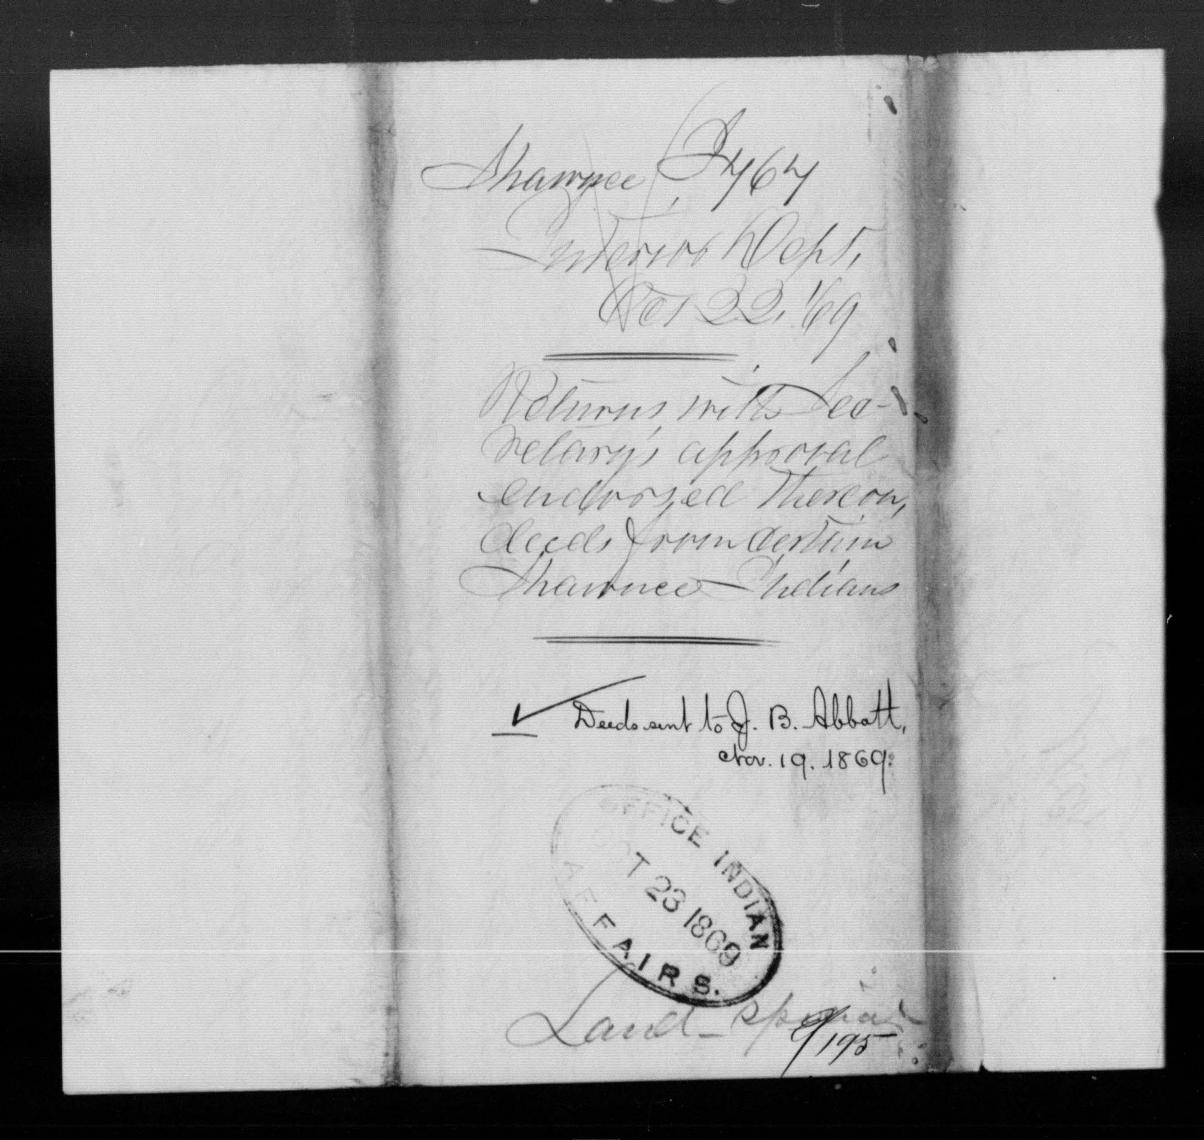 Shawnee, I 767
Interior Dept.
Oct 22, '69
Returns, with Sec-
retary's approval
endorsed thereon,
deeds from certain
Shawnee Indians
Deeds sent to J. B. Abbott,
Nov. 19. 1869.
OFFICE INDIAN
OCT 23 1869
AFFAIRS.
Land - Special
195